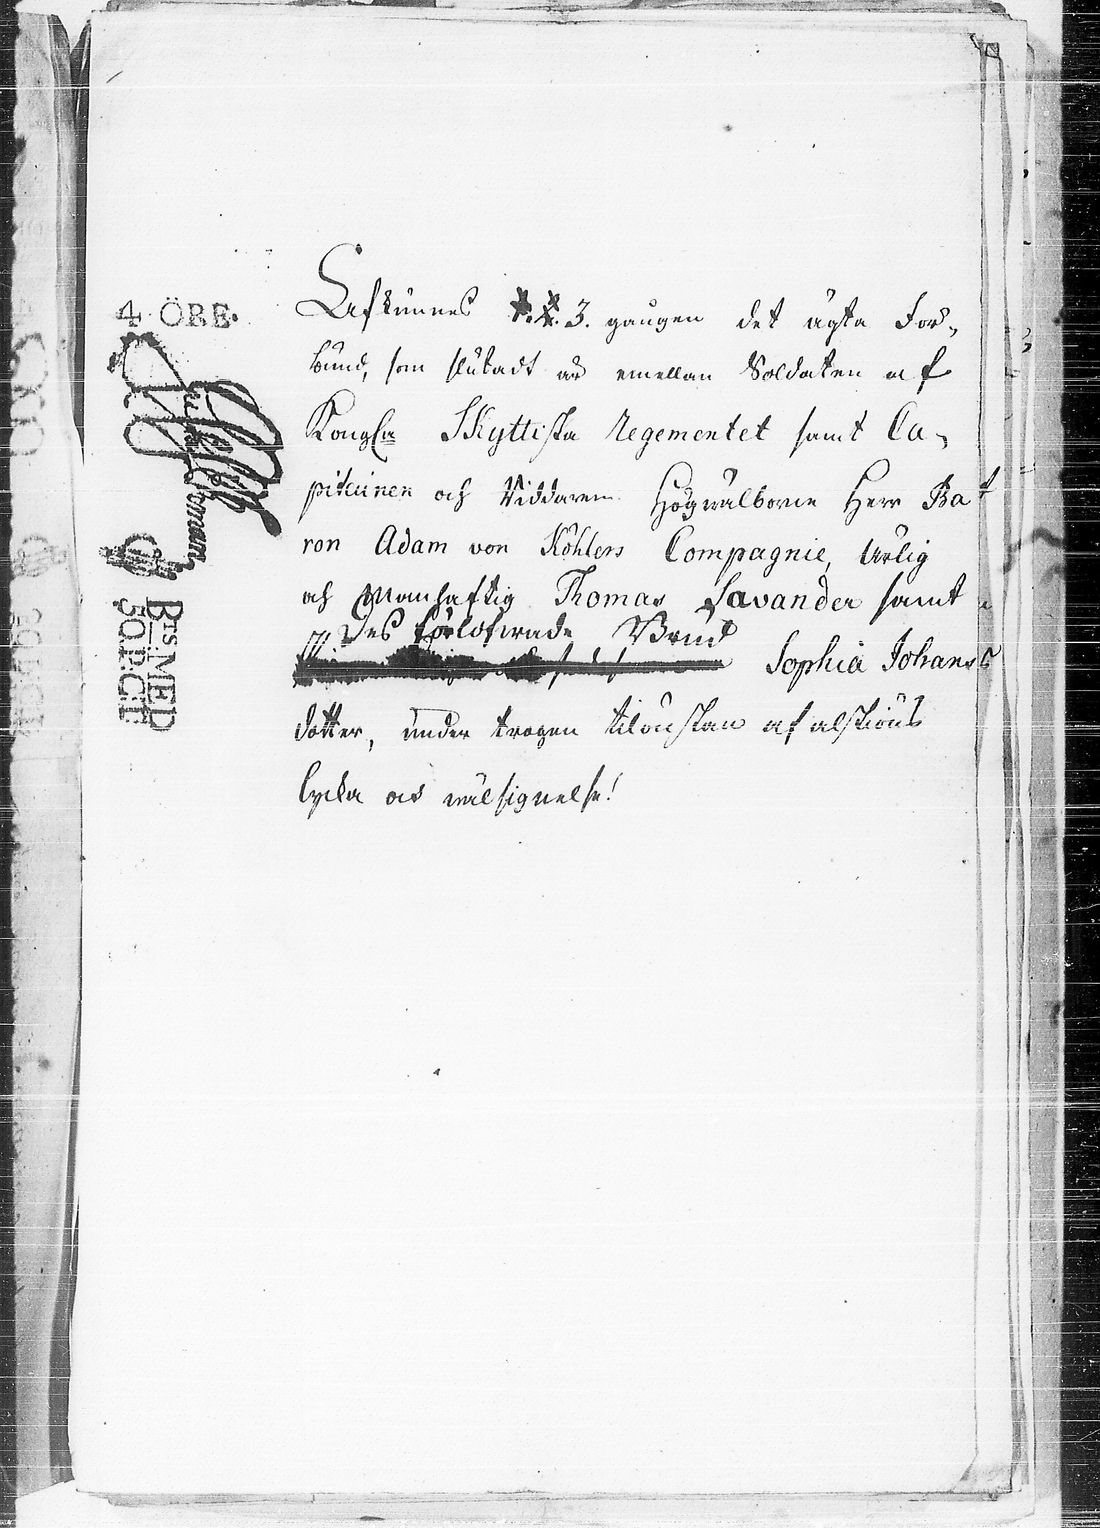 4 ÖRE.
BTS MED
50. P. CT
Afkunnes 3. gången det ägta För-
bund, som slutadt är emellan Soldaten af
Kongla Skyttska Regementet samt Ca-
pitainen och Riddaren Högwälborne Herr Ba
ron Adam von Köhlers Compagnie, Ärlig
och Manhaftig Thomas Savander samt
Des Förlofwade Brud
Sophia Johans
dotter, under trogen tilönskan af alskiöns
lycka och wälsignelse!